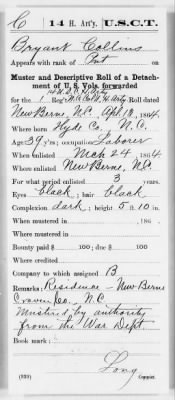 C | 14 H. Art'y. | U.S.C.T.
Bryant Collins
Appears with rank of Pvt on
Muster and Descriptive Roll of a Detach-
ment of U. S. Vols. forwarded
14 U.S.C.H. Arty
for the 1 Reg't N.C. Col'd H. Arty Roll dated
New Berne, N.C. Apl. 18, 1864
Where born Hyde Co., N.C.
Age 39 y'rs; occupation Laborer
When enlisted Mch 24, 1864
Where enlisted New Berne, N.C.
For what period enlisted 3 years.
Eyes black; hair black
Complexion dark; height 5 ft. 10 in.
When mustered in , 186
Where mustered in
Bounty paid $ 100; due $ 100
Where credited
Company to which assigned B
Remarks: Residence - New Berne
Craven Co., N.C.
Mustered by authority
from the War Dept.
Book mark:
Long
(339) Copyist.